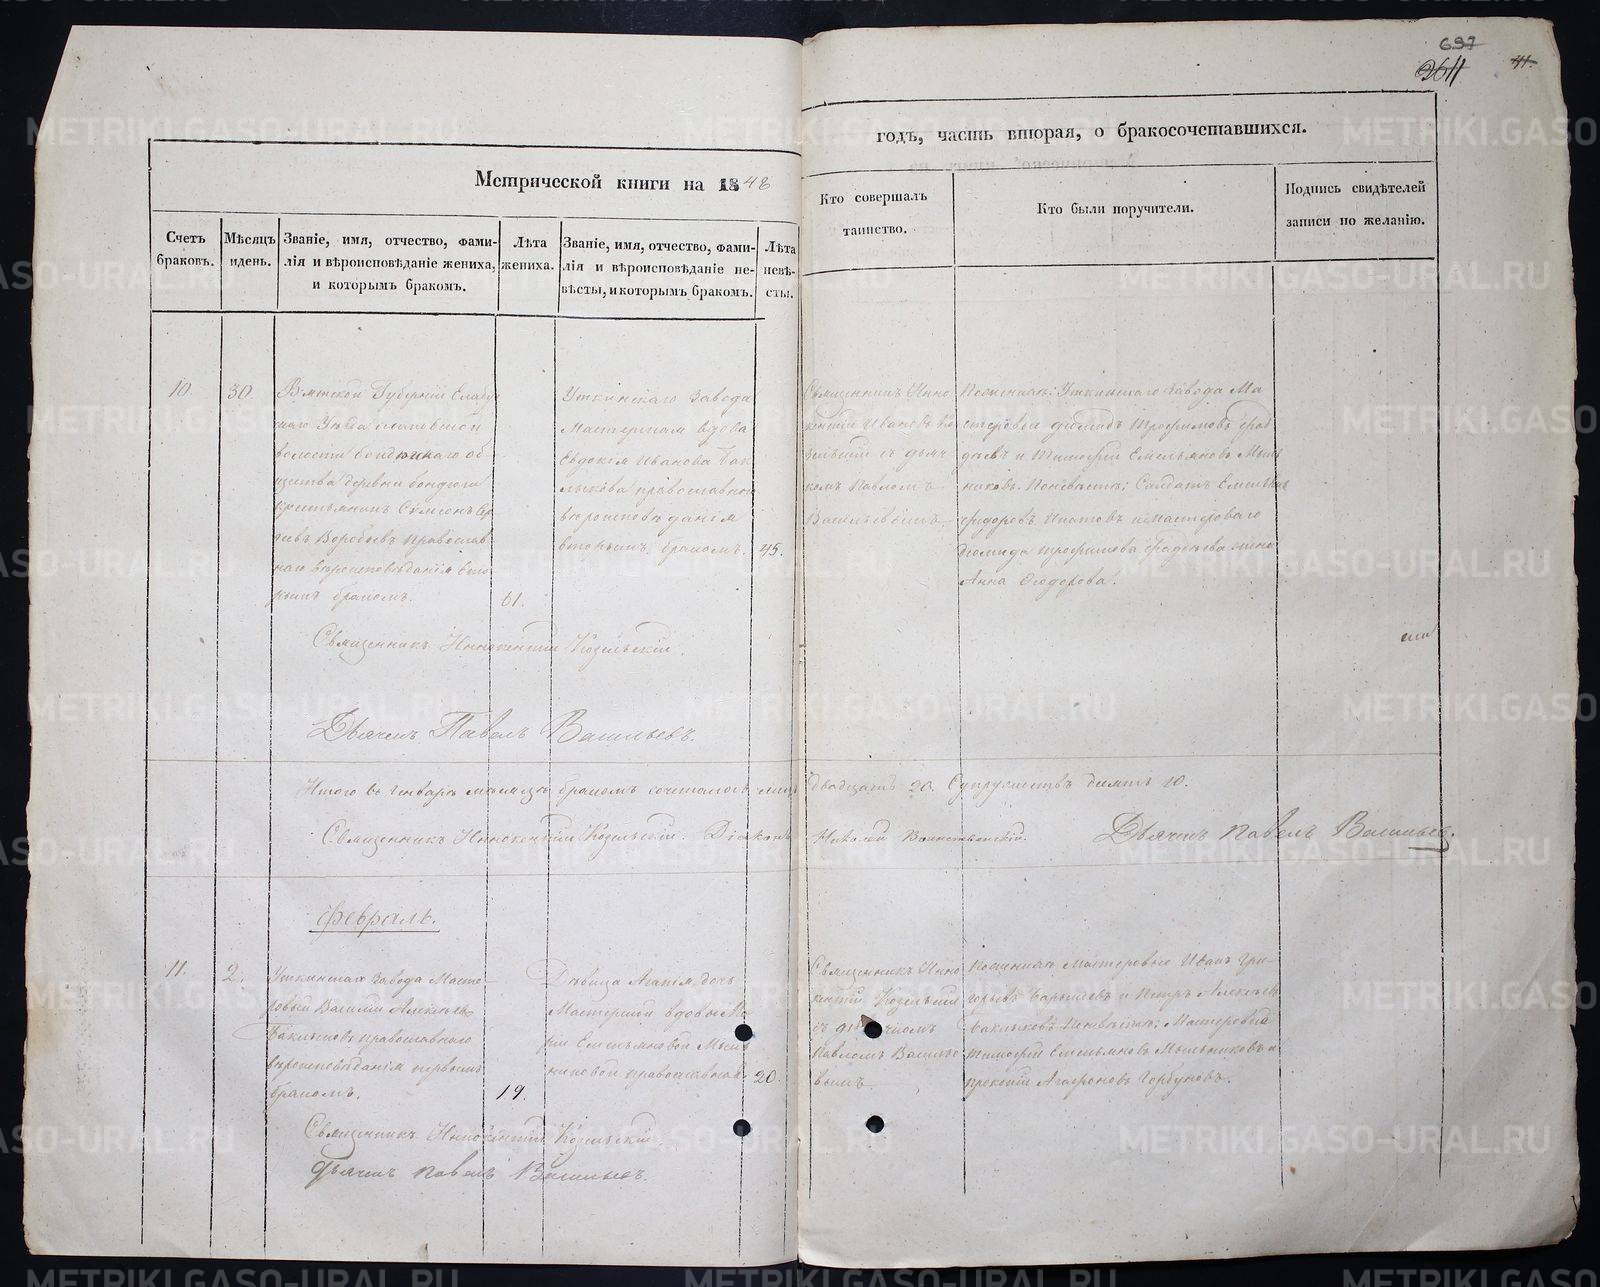 697
2611
41.
Метрической книги на 1848
годъ, часть вторая, о бракосочетавшихся.
Счетъ браковъ.
Мѣсяцъ и день.
Званіе, имя, отчество, фамилія и вѣроисповѣданіе жениха, и которымъ бракомъ.
Лѣта жениха.
Званіе, имя, отчество, фамилія и вѣроисповѣданіе невѣсты, и которымъ бракомъ.
Лѣта невѣсты.
Кто совершалъ таинство.
Кто были поручители.
Подпись свидѣтелей записи по желанію.
10.
30.
Вятской Губерніи Елабу
жскаго Уѣзда
волости бондюжскаго об
щества деревни бондюга
крестьянинъ Симеонъ
Воробьевъ Православ
наго вѣроисповѣданія вто
рымъ бракомъ.
61.
Уткинскаго Завода
Мастерская вдова
Евдокія Иванова Бак
лыкова православнаго
вѣроисповѣданія
вторымъ бракомъ.
45.
Священникъ Инно
кентій Ивановъ Ко
зельскій съ дьяч
комъ Павломъ
Васильевымъ
По женихѣ: Уткинскаго Завода Ма
стеровые діомидъ трофимовъ фад
деевъ и Тимофей Емельяновъ Мыль
никовъ. По невѣстѣ: Солдатъ Емельянъ
Федоровъ Ипатовъ и мастероваго
Діомида трофимова фадеева жена
Анна Ѳедорова.
Священникъ Иннокентій Козельскій.
Дьячекъ Павелъ Васильевъ.
Итого въ Генварѣ мѣсяцѣ бракомъ сочеталось лицъ двадцать 20. Супружествъ десять 10.
Священникъ Иннокентій Козельскій. Діаконъ Николай Воинственскій. Дьячекъ Павелъ Васильевъ.
февраль.
11.
2.
Уткинскаго завода Масте-
ровый Василій Алексѣевъ
Баклыковъ православнаго
вѣроисповѣданія первымъ
бракомъ.
19.
Дѣвица Агапія, дочь
Мастерской вдовы Ма
ріи Емельяновой Мыль
никовой православная
20.
Священникъ Инно
кентій Козельскій
съ дьячкомъ
Павломъ Василье
вымъ
По женихѣ Мастеровые Иванъ Гри-
горьевъ и Петръ Алексѣевъ
Баклыковъ. По невѣстѣ: Мастеровые
тимофей Емельяновъ Мыльниковъ и
Агафоновъ Горбуновъ.
Священникъ Иннокентій Козельскій.
Дьячекъ Павелъ Васильевъ.
METRIKI.GASO-URAL.RU